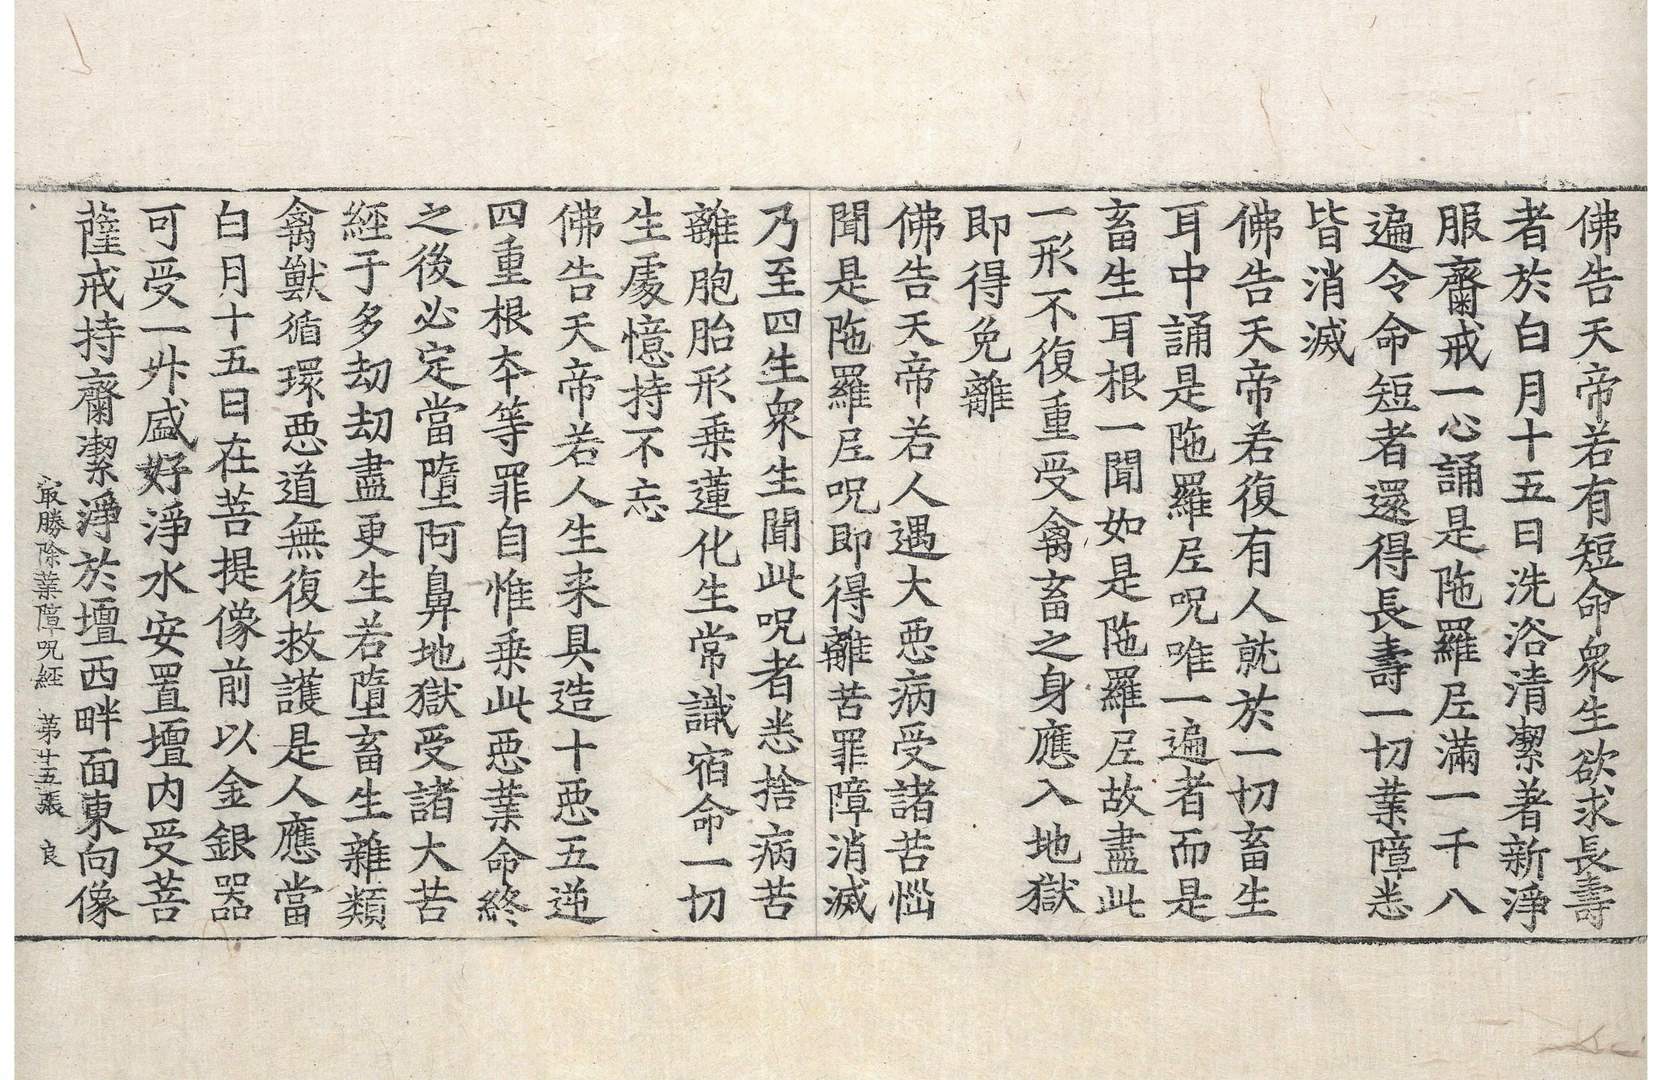 佛告天帝若有短命衆生欲求長壽
者於白月十五日洗浴清潔著新淨
服齋戒一心誦是陁羅尼滿一千八
遍令命短者還得長壽一切業障悉
皆消滅
佛告天帝若復有人就於一切畜生
耳中誦是陁羅尼呪唯一遍者而是
畜生耳根一聞如是陁羅尼故盡此
一形不復重受禽畜之身應入地獄
即得免離
佛告天帝若人遇大惡病受諸苦惱
聞是陁羅尼呪即得離苦罪障消滅
乃至四生衆生聞此呪者悉捨病苦
離胞胎形乗蓮化生常識宿命一切
生處憶持不忘
佛告天帝若人生来具造十惡五逆
四重根夲等罪自惟乗此惡業命終
之後必定當墮阿鼻地獄受諸大苦
經于多劫劫盡更生若墮畜生雜類
禽獸循環惡道無復救護是人應當
白月十五日在菩提像前以金銀器
可受一升盛好淨水安置壇内受菩
薩戒持齋潔淨於壇西畔面東向像
冣勝除業障呪經 第廿五張 良